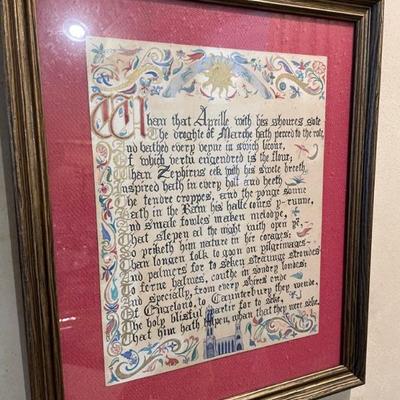 Whan that Aprille with his shoures sote
The droghte of Marche hath perced to the rote,
And bathed every veyne in swich licour,
Of which vertu engendred is the flour;
Whan Zephirus eek with his swete breeth
Inspired hath in every holt and heeth
The tendre croppes, and the yonge sonne
Hath in the Ram his halfe cours y-runne,
And smale fowles maken melodye,
That slepen al the night with open yë,
So priketh hem nature in hir corages:
Than longen folk to goon on pilgrimages
And palmers for to seken straunge strondes
To ferne halwes, couthe in sondry londes;
And specially, from every shires ende
Of Engelond, to Caunterbury they wende,
The holy blisful martir for to seke,
That him hath holpen, whan that they were seke.